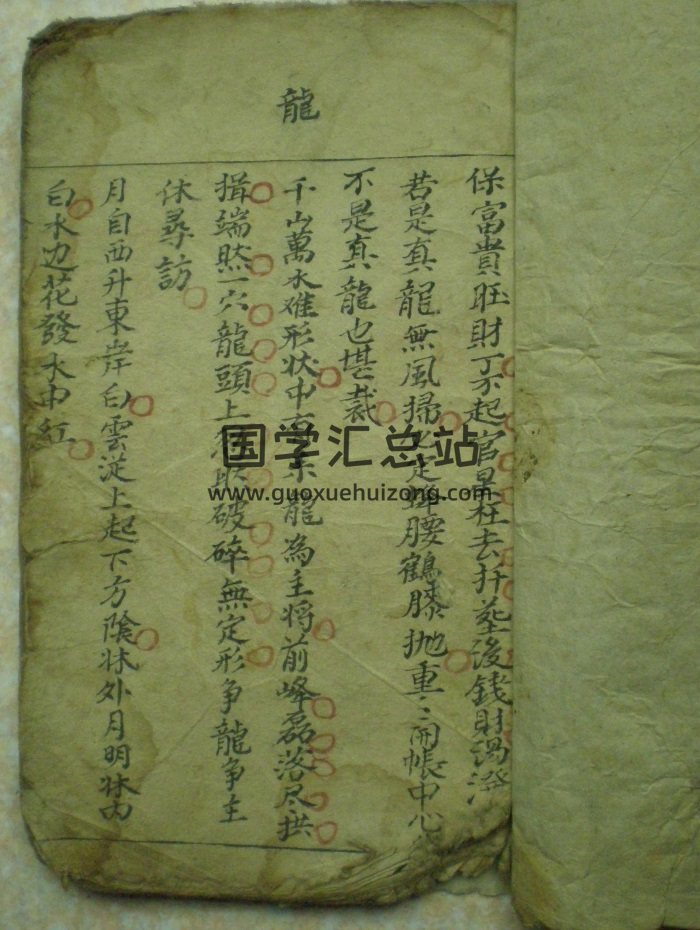 龍
保富貴旺財丁不起官星枉去扦塟後錢財湯潑
若是真龍無風掃定蜂腰鶴膝抛重〻開帳中心
不是真龍也堪裁
千山萬水难形状中龍為主將前峰磊落尽拱
揖端然一穴龍頭上破碎無定形争龍争主
休尋訪
月自西升東岸白雲從上起下方陰牀外月明牀内
白水边花發水中紅
国学汇总站
www.guoxuehuizong.com